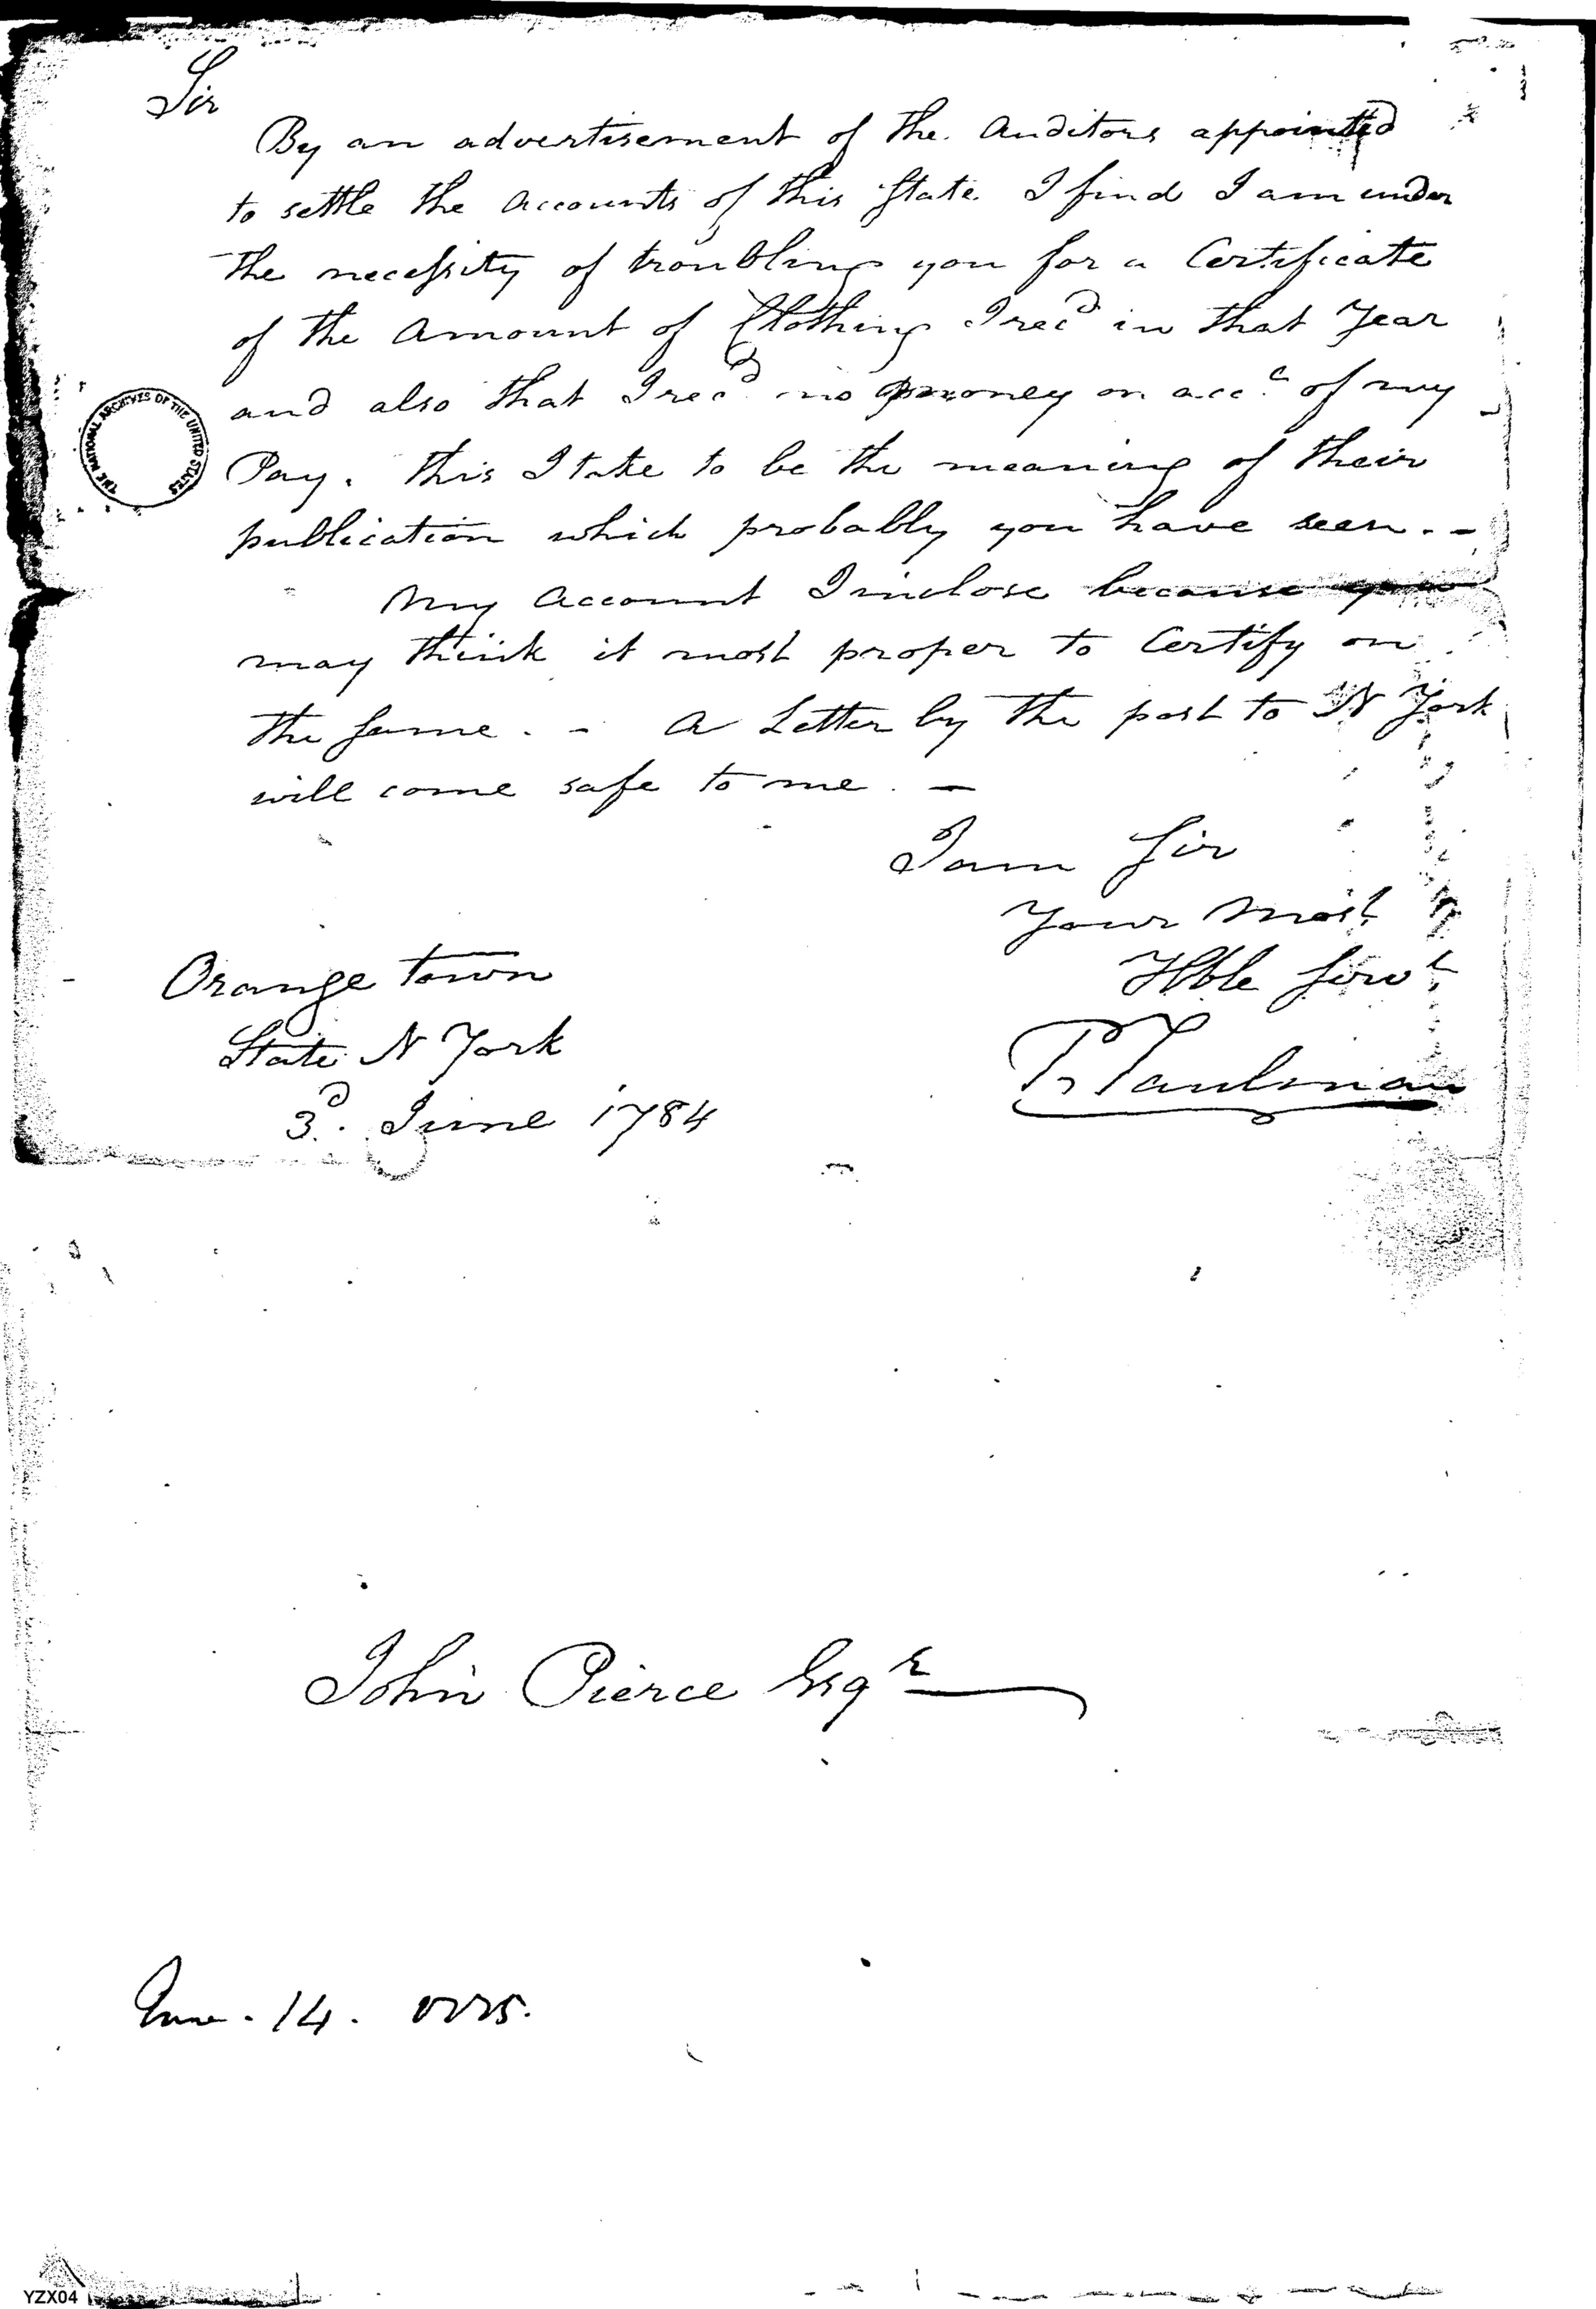 Sir
By an advertisement of the Auditors appointed
to settle the Accounts of this State I find I am under
the necessity of troubling you for a Certificate
of the Amount of Clothing I recd in that Year
and also that I recd no money on acct of my
Pay. this I take to be the meaning of their
publication which probably you have seen. -
My Account I inclose because you
may think it most proper to Certify on
the same. - A Letter by the post to N York
will come safe to me. —
I am Sir
Your Most
Hble Servt
P. Taulman
Orange town
State N York
3d. June 1784
THE NATIONAL ARCHIVES OF THE UNITED STATES
John Pierce Esqr
14.
YZX04